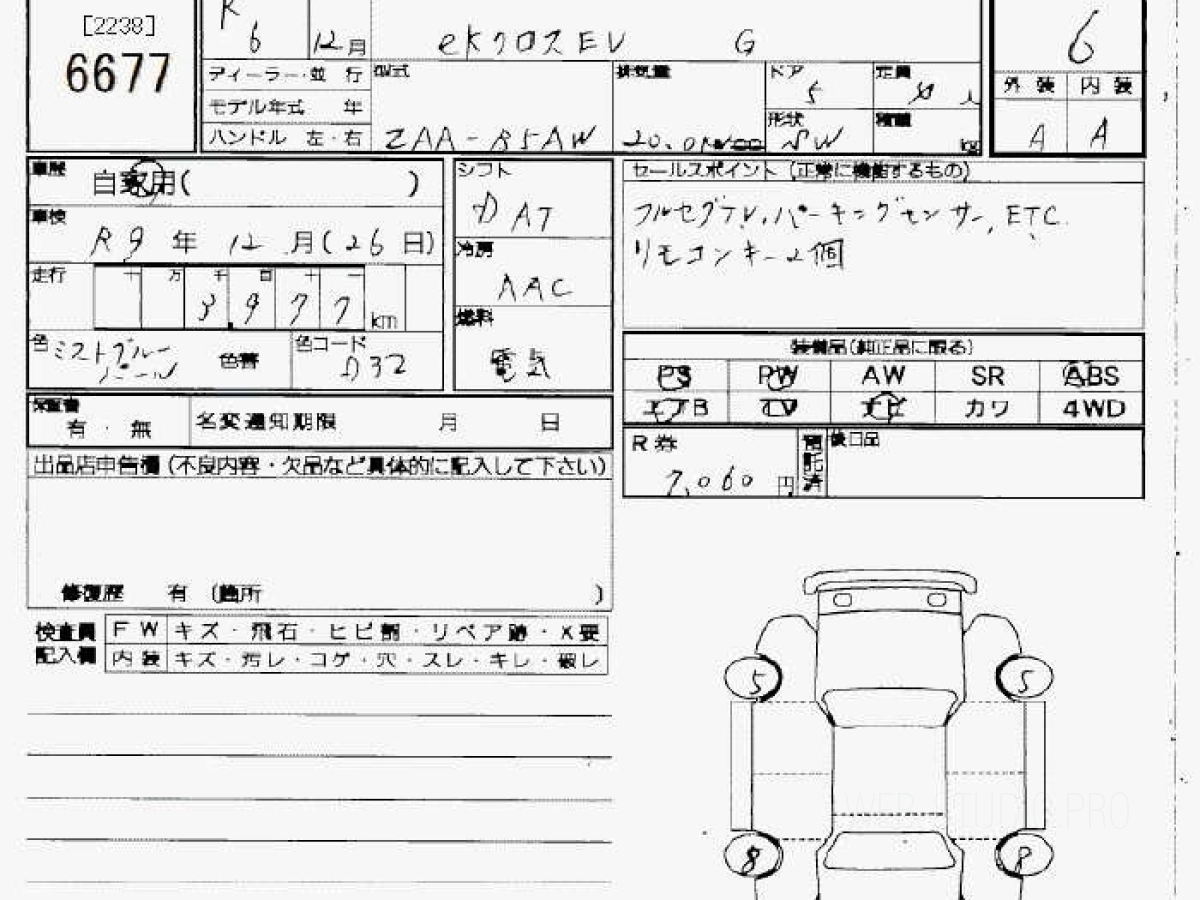 [2238]
6677
R
6
12月
eKクロスEV G
6
ディーラー・並 行
型式
排気量
ドア
5
定員
4人
外 装
内 装
モデル年式 年
形状
SW
積載
kg
A
A
ハンドル 左・右
ZAA-B5AW
20.0kw
車歴
自家用( )
シフト
DAT
セールスポイント (正常に機能するもの)
フルセグTV、パーキングセンサー、ETC
リモコンキー2個
車検
R9年 12月(26日)
冷房
AAC
走行
十 万 千 百 十 一
3977 km
燃料
電気
色
ミストブルー
パール
色替
色コード
D32
装備品(純正品に限る)
PS PW AW SR ABS
エアB TV ナビ カワ 4WD
保証書
有・無
名変通知期限 月 日
R券
7,060円
預託済
後日品
出品店申告欄 (不良内容・欠品など具体的に記入して下さい)
修復歴 有 (箇所 )
検査員
記入欄
FW キズ・飛石・ヒビ割・リペア跡・X要
内装 キズ・汚レ・コゲ・穴・スレ・キレ・破レ
5
5
8
8
WEB STUDIO PRO